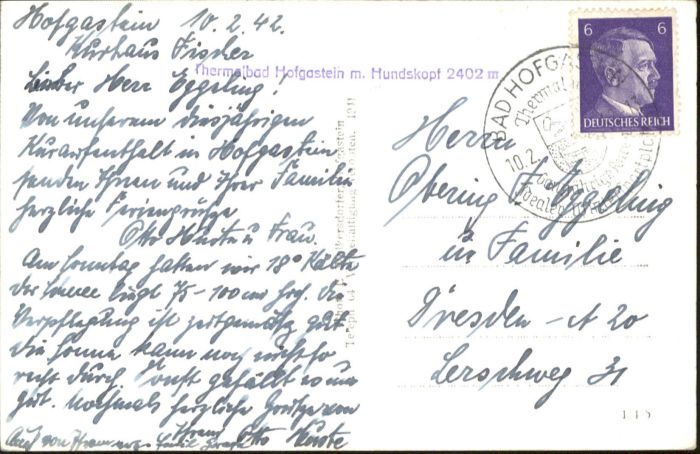 Hofgastein 10.2.42.
Kurhaus Fischer
Lieber Herr Eggeling!
Von unserem diesjährigen
Kuraufenthalt in Hofgastein
senden Ihnen und Ihrer Familie
herzliche Feriengrüße
Otto Hurste u Frau.
Am Sonntag hatten wir 18° Kälte
der Schnee liegt 75-100 cm hoch. Die
Verpflegung ist zeitgemäß gut.
die Sonne kann noch nicht so
recht durch. Sonst gefällt es uns
gut. Nochmals herzliche Grüße von
Ihrem Otto Hurste
Auch von
Thermalbad Hofgastein m. Hundskopf 2402 m
6 6
DEUTSCHES REICH
BAD HOFGAS
Thermal
10.2.
Herrn
Obering. F. Eggeling
u Familie
Dresden - A 20
Lerschweg 31